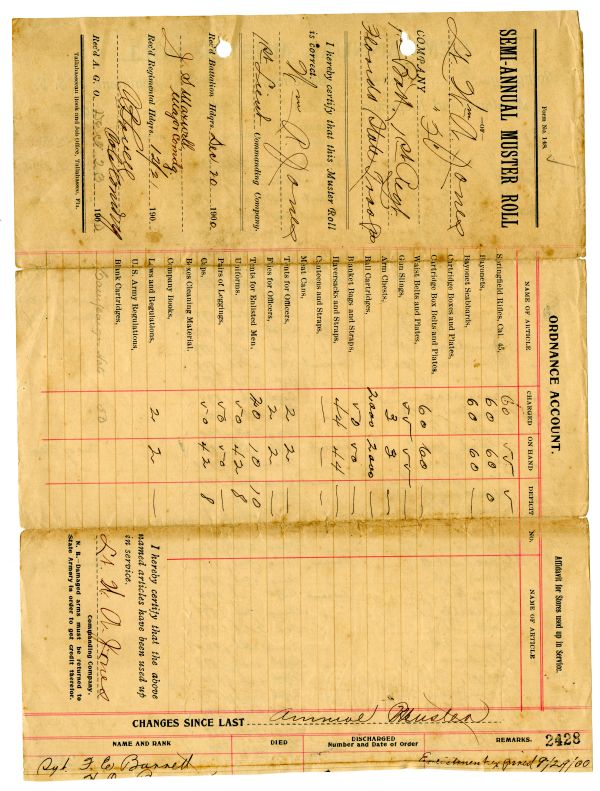 Form No. 148.
SEMI-ANNUAL MUSTER ROLL
—OF—
Lt. Wm A. Jones
COMPANY
1st Batt, 1st Regt
Florida State Troops
I hereby certify that this Muster Roll
is correct.
Wm A. Jones
1st Lieut Commanding Company.
Rec'd Battalion Hdqrs. Dec 20 1900
J. S. Maxwell
Major Comdg
Rec'd Regimental Hdqrs. 12/2 190
Rec'd A. G. O. Dec 23 190
Tallahasseean Book and Job Office, Tallahassee, Fla.
ORDNANCE ACCOUNT.
NAME OF ARTICLE CHARGED ON HAND DEFICIT
Springfield Rifles, Cal. 45, 60 55 5
Bayonets, 60 60 0
Bayonet Scabbards, 60 60 —
Cartridge Boxes and Plates,
Cartridge Box Belts and Plates,
Waist Belts and Plates, 60 60 —
Gun Slings, 55 55 —
Arm Chests, 3 3 —
Ball Cartridges, 2000 2000 —
Blanket Bags and Straps, 50 50 —
Haversacks and Straps, 44 44 —
Canteens and Straps, — — —
Meat Cans,
Tents for Officers, 2 2 —
Flies for Officers, 2 2 —
Tents for Enlisted Men, 20 10 10
Uniforms, 50 42 8
Pairs of Leggings, 50 50 —
Caps, 50 42 8
Boxes Cleaning Material,
Company Books,
Laws and Regulations, 2 2 —
U. S. Army Regulations,
Blank Cartridges,
Affidavit for Stores used up in Service.
No. NAME OF ARTICLE
I hereby certify that the above
named articles have been used up
in service.
Lt. W. A. Jones
Commanding Company.
N. B.—Damaged arms must be returned to
State Armory in order to get credit therefor.
CHANGES SINCE LAST Annual Muster
NAME AND RANK DIED DISCHARGED Number and Date of Order REMARKS.
2428
Sgt. F. E. Barnett Enlistment expired 8/29/00